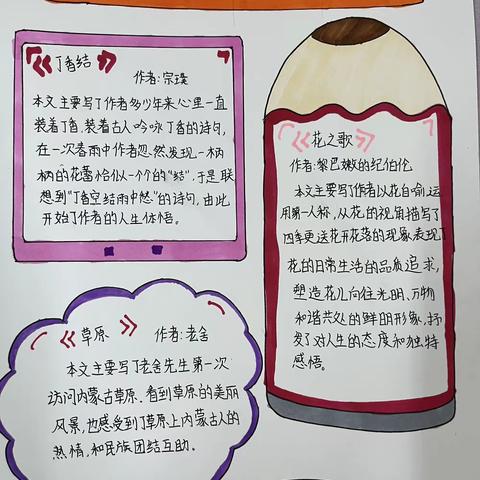 《丁香结》
作者:宗璞
本文主要写了作者多少年来心里一直
装着丁香,装着古人吟咏丁香的诗句,
在一次春雨中作者忽然发现一柄
柄的花蕾恰似一个个的“结”,于是联
想到“丁香空结雨中愁”的诗句,由此
开始了作者的人生体悟。
《花之歌》
作者:黎巴嫩的纪伯伦
本文主要写作者以花自喻,运
用第一人称,从花的视角描写了
四季更迭花开花落的现象,表现了
花的日常生活的品质追求,
塑造花儿向往光明、万物
和谐共处的鲜明形象,抒
发了对人生的态度和独特
感悟。
《草原》 作者:老舍
本文主要写了老舍先生第一次
访问内蒙古草原,看到草原的美丽
风景,也感受到了草原上内蒙古人的
热情,和民族团结互助。